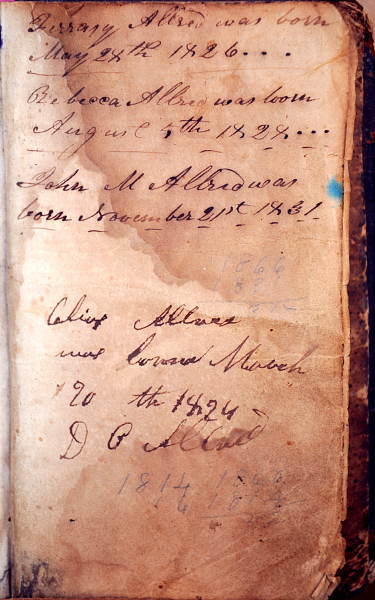 Allred was born
May 28th 1826...
Rebecca Allred was born
August 5th 1828...
John M Allred was
born November 21st 1831
1866
Allred
was bornd March
20 th 1824
D Allred
1814